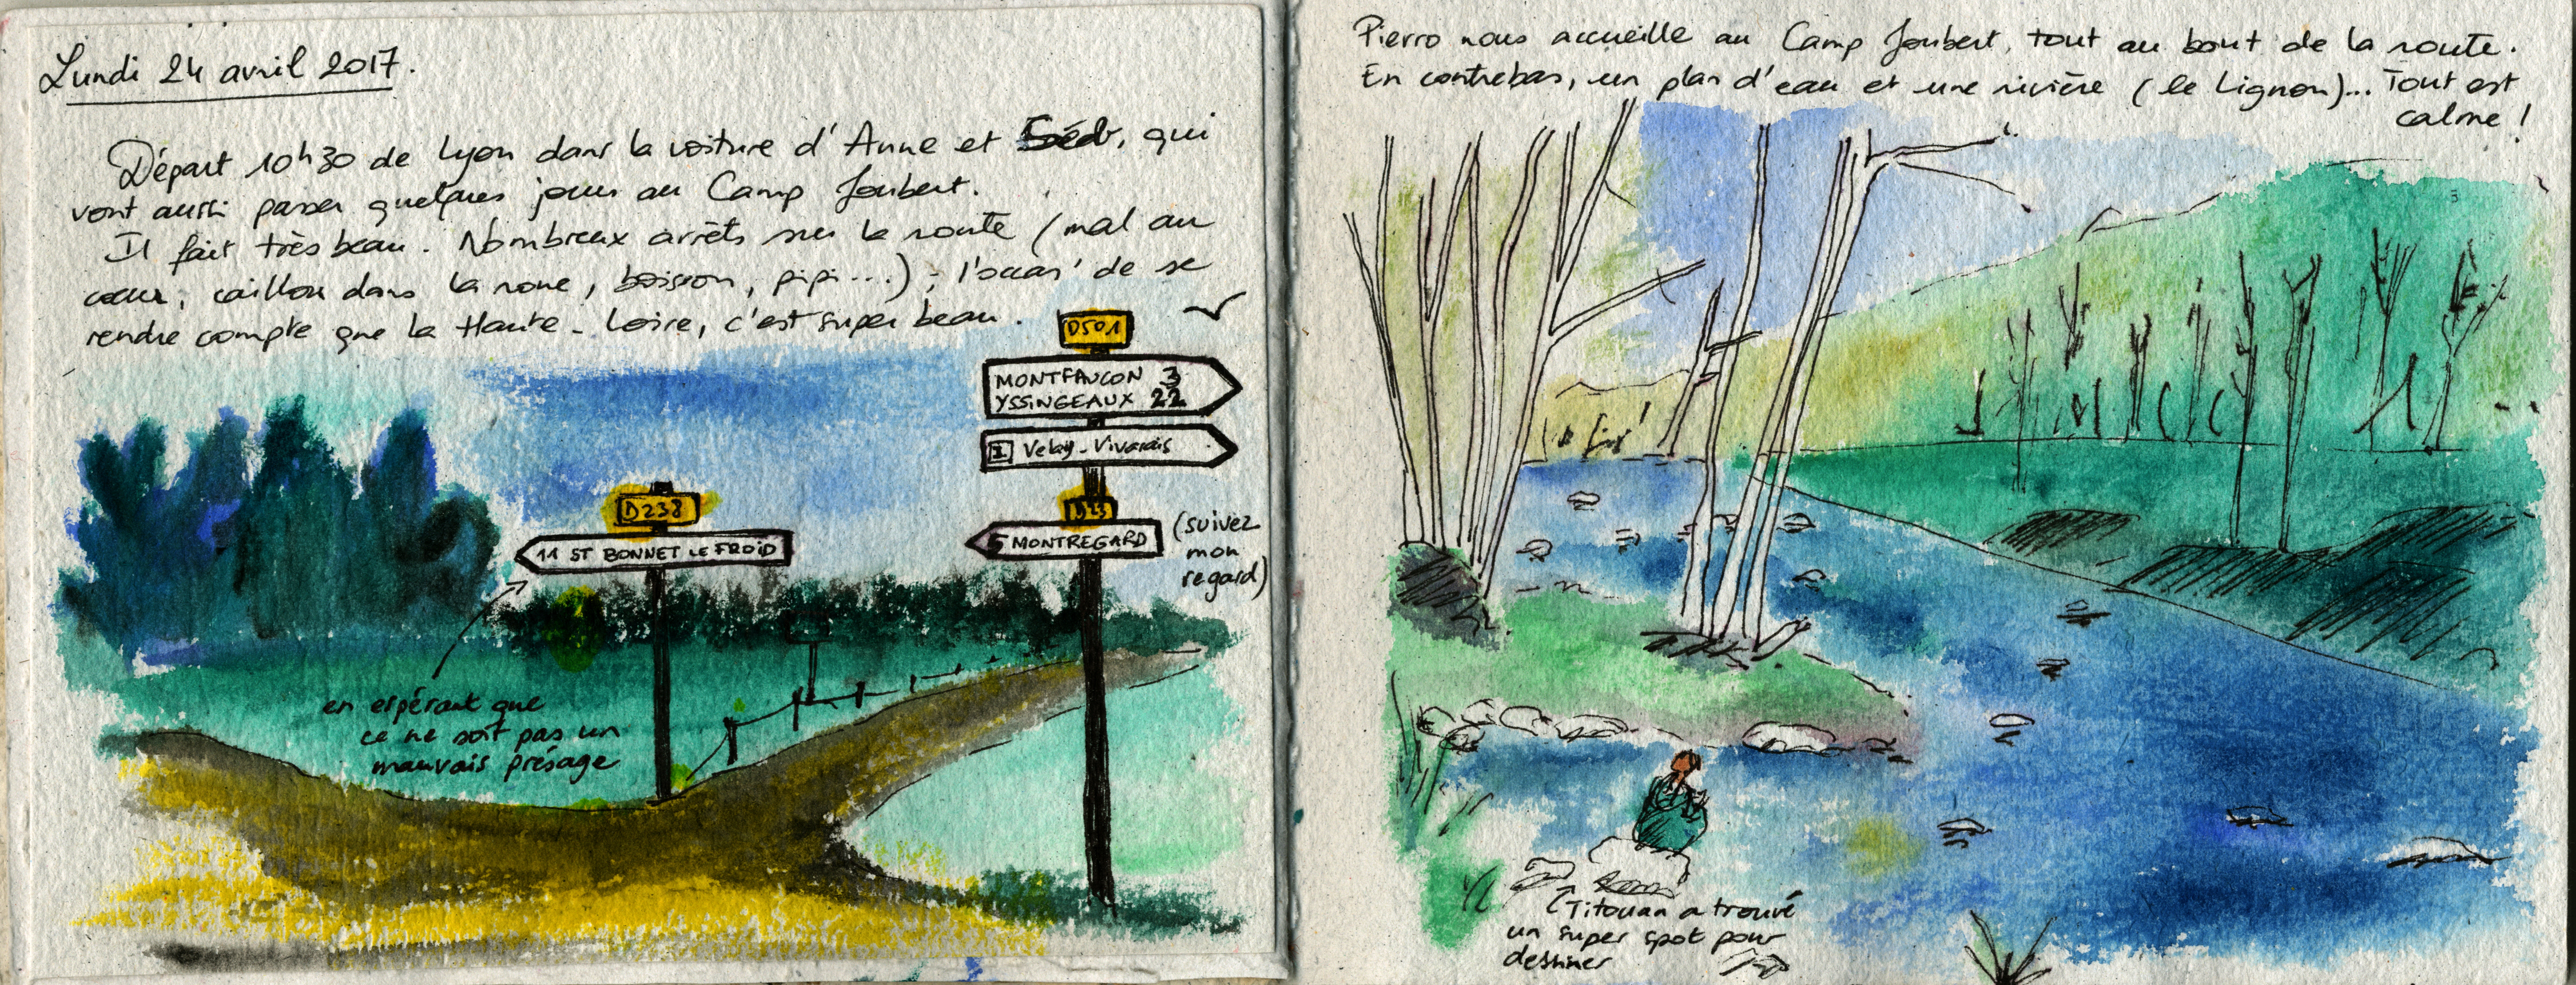 Lundi 24 avril 2017.
Départ 10h30 de Lyon dans la voiture d'Anne et Séb, qui
vont aussi passer quelques jours au Camp Joubert.
Il fait très beau. Nombreux arrêts sur la route (mal au
cœur, caillou dans la roue, boisson, pipi...) ; l'occas' de se
rendre compte que la Haute-Loire, c'est super beau.
D501
MONTFAUCON 3
YSSINGEAUX 22
I Velay-Vivarais
D23
5 MONTREGARD
(suivez
mon
regard)
D238
11 ST BONNET LE FROID
en espérant que
ce ne soit pas un
mauvais présage
Pierro nous accueille au Camp Joubert, tout au bout de la route.
En contrebas, un plan d'eau et une rivière (le Lignon)... Tout est
calme !
Titouan a trouvé
un super spot pour
dessiner